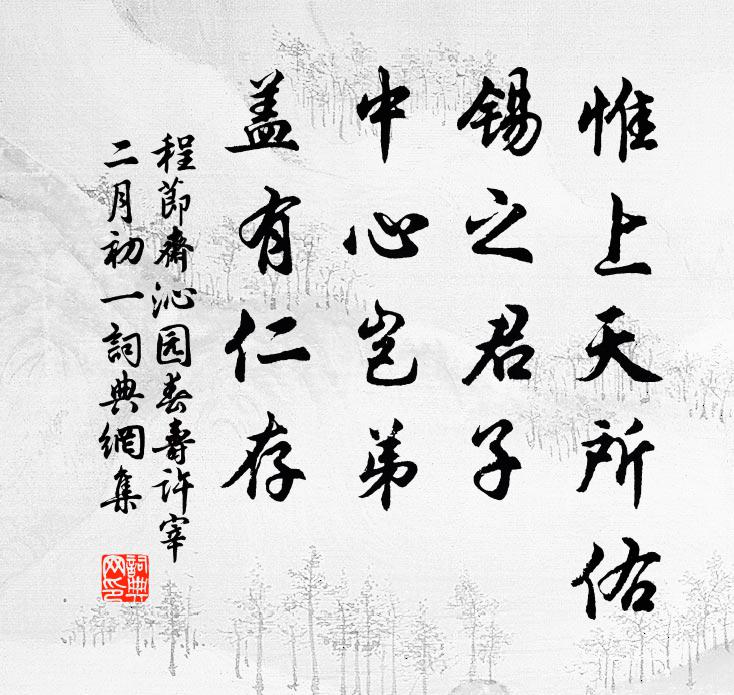 惟上天所佑
锡之君子
中心岂弟
盖有仁存
程節齋沁园春壽許宰
二月初一詞典網集
詞典网印